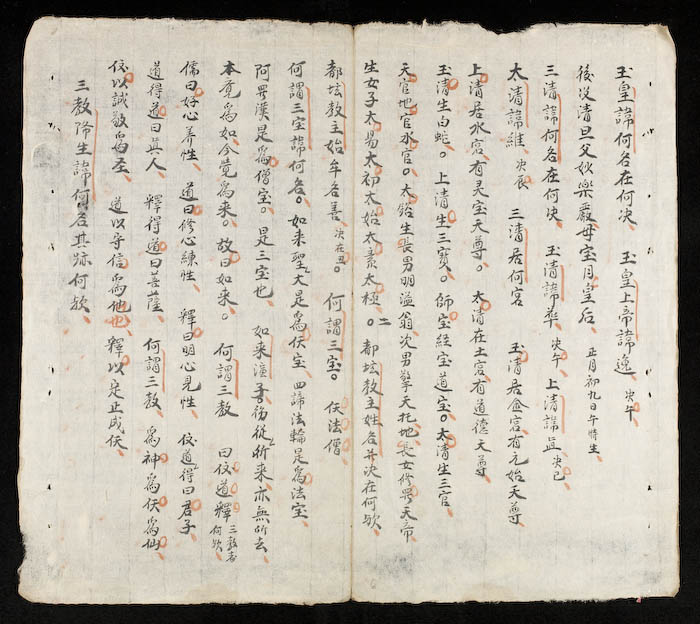 玉皇諱何名在何决、 玉皇上帝諱逸、决午、
後从清旦父妙樂嚴母宝月皇后、 正月初九日午時生、
三清諱何名在何决、 玉清諱華、决午、上清諱 决巳、
太清諱維、决辰、 三清居何宮、 玉清居金宮有元始天尊
上清居水宮有灵宝天尊。 太清在土宮有道德天尊
玉清生白蛇。上清生三寳。師宝經宝道宝。太清生三官、
天官地官水官。太 生長男明 翁次男擎天托地長女修 天帝
生女子太昜太初太始太素太極。 都坛教主姓名并决在何欤、
都坛教主始牟名善决在丑。 何謂三宝。 伕法僧
何謂三宝諱何名。如来聖丈是爲伕宝、四諦法輪是爲法宝、
阿羅漢是爲僧宝。是三宝也、 如来 者彷從所来亦無所去、
本覔爲如今覚爲来。故曰如来。 何謂三教 曰伩道釋三教者何欤、
儒曰好心养性、 道曰修心練性、 釋曰明心見性、 伩道得曰君子
道得道曰真人 釋得道曰菩薩、 何謂三教、 爲神爲伕爲仙
伩以誠敬爲圣、 道以守信爲他也、釋以定正成伕、
三教降生諱何名其跡何欤、